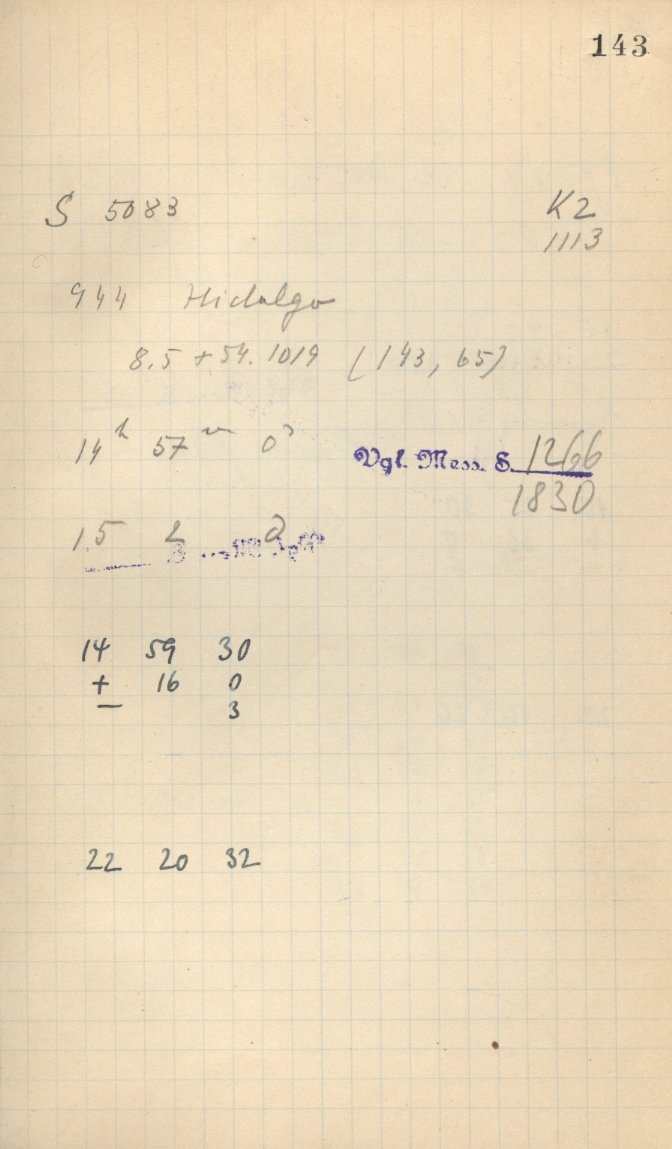 143
S 5083 K2
1113
944 Hidalgo
8.5 + 54. 1019 (143, 65)
14h 57m 0s Vgl. Mess. S. 1266
1830
15 2 0
14 59 30
+ 16 0
− 3
22 20 32